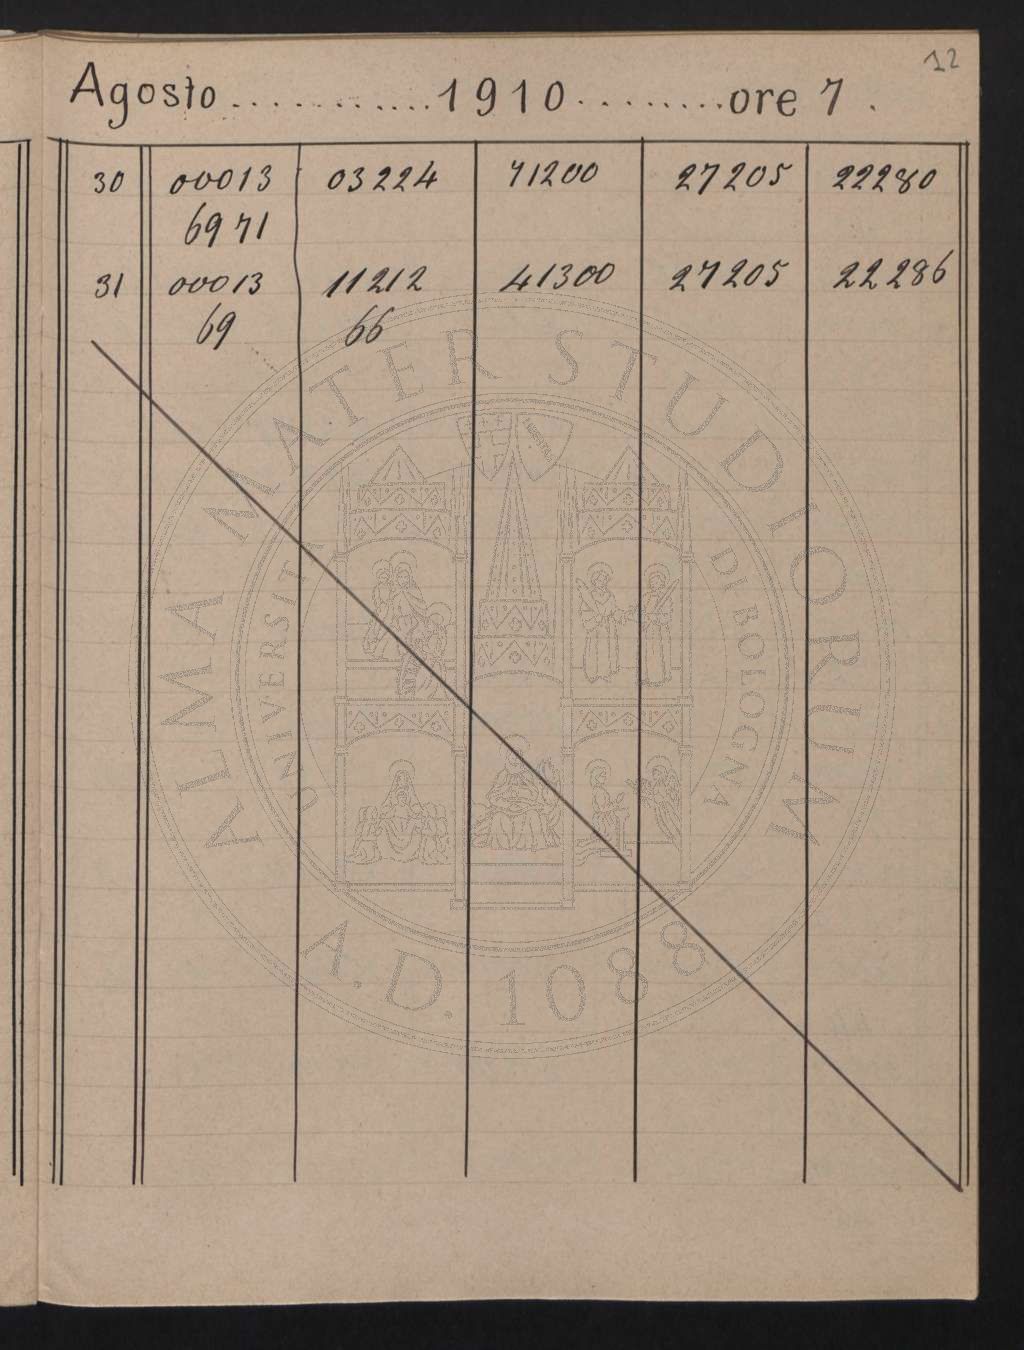 12
Agosto ............ 1910 ........ ore 7 .
30 00013 03224 71200 27205 22280
69 71
31 00013 11212 41300 27205 22286
69 66
ALMA MATER STUDIORUM
UNIVERSITÀ DI BOLOGNA
A.D. 1088